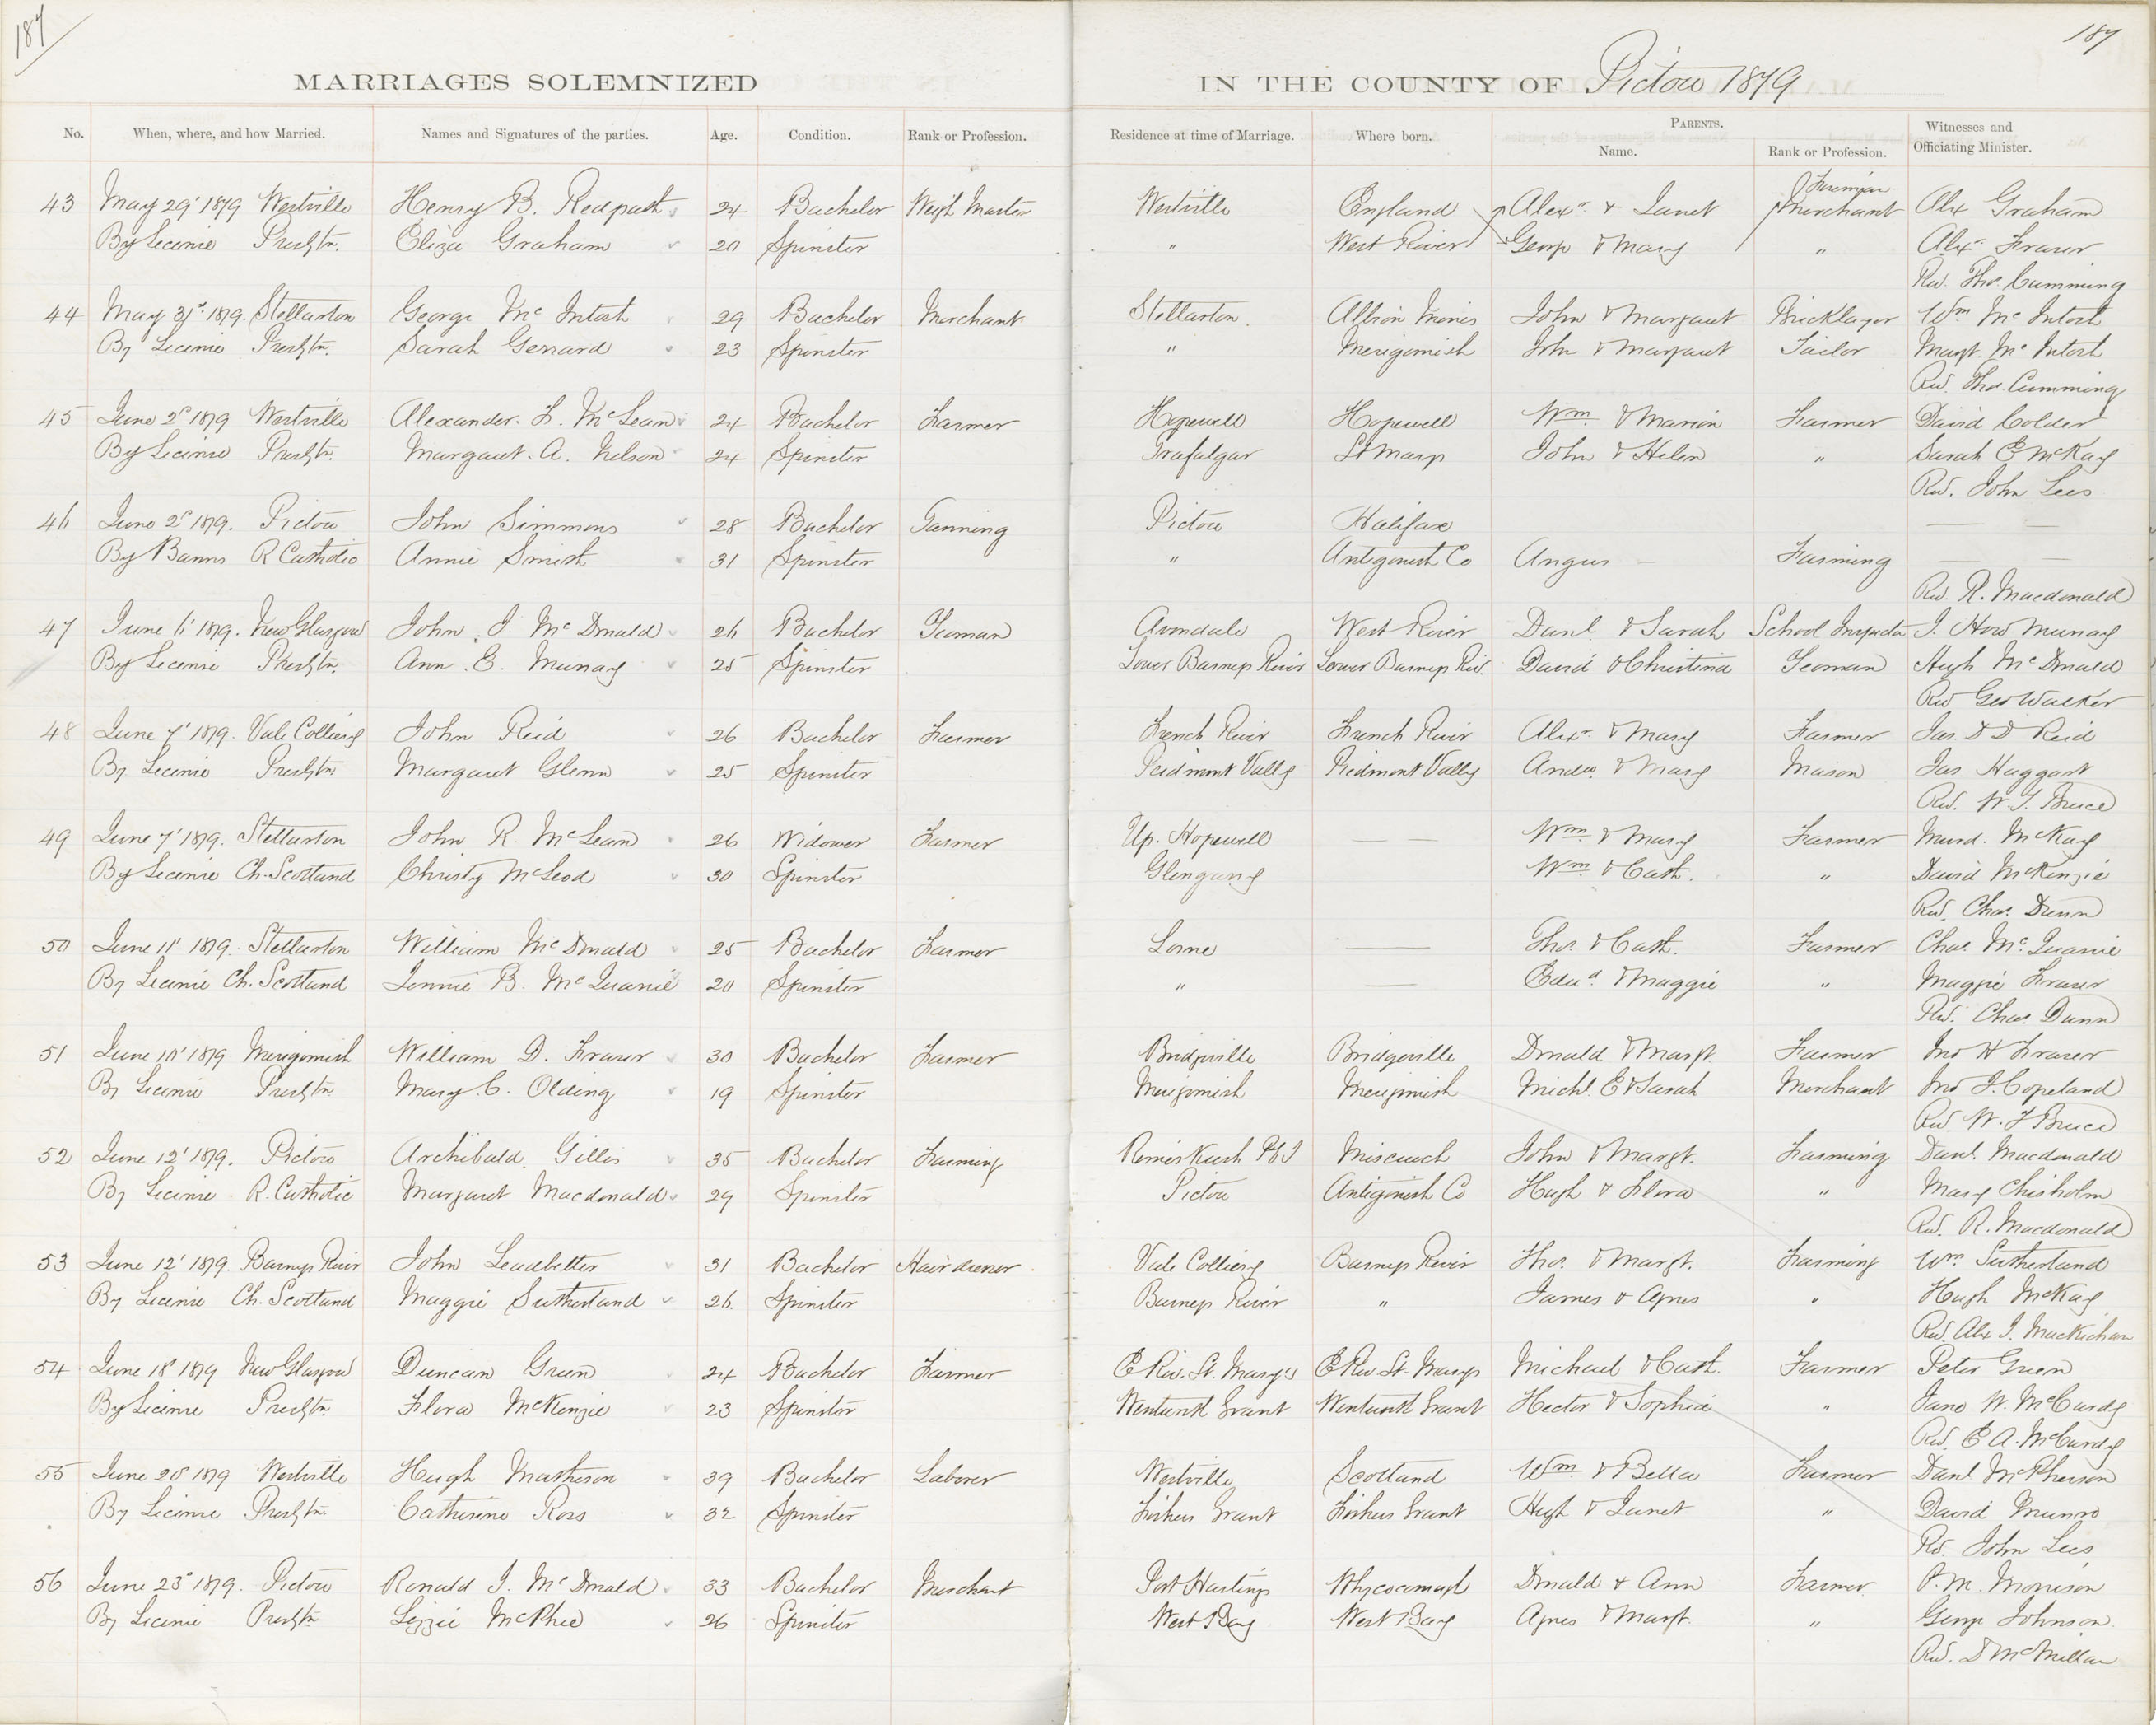 187
187
MARRIAGES SOLEMNIZED IN THE COUNTY OF Pictou 1879
No. When, where, and how Married. Names and Signatures of the parties. Age. Condition. Rank or Profession. Residence at time of Marriage. Where born. PARENTS. Name. Rank or Profession. Witnesses and Officiating Minister.
Foreman
43 May 29' 1879 Westville Henry B. Redpath 24 Bachelor Weigh Master Westville England Alexr. & Janet Merchant Alx Graham
By License Presbtn. Eliza Graham 20 Spinster " West River George & Mary " Alxr. Fraser
Rev. Thos. Cumming
44 May 31st 1879. Stellarton George Mc Intosh 29 Bachelor Merchant Stellarton. Albion Mines John & Margaret Bricklayer Wm Mc Intosh
By License Presbtn. Sarah Gerrard 23 Spinster " Merigomish John & Margaret Tailor Margt. Mc Intosh
Rev. Thos. Cumming
45 June 2d 1879 Westville Alexander. F. McLean 24 Bachelor Farmer Hopewell Hopewell Wm. & Marion Farmer David Colder
By License Presbtn. Margaret. A. Nelson 24 Spinster Trafalgar St Marys John & Helen " Sarah E McKay
Rev. John Lees
46 June 2d 1879. Pictou John Simmons 28 Bachelor Tanning Pictou Halifax — —
By Banns R Catholic Annie Smith 31 Spinster " Antigonish Co Angus — Farming —
Rev. R. Macdonald
47 June 6' 1879. New Glasgow John J. Mc Donald 26 Bachelor Yeoman Avondale West River Danl. & Sarah School Inspector J. How Murray
By License Presbtn. Ann. E. Murray 25 Spinster Lower Barneys River Lower Barneys Riv. David & Christina Yeoman Hugh Mc Donald
Rev Geo Walker
48 June 7' 1879. Vale Colliery John Reid 26 Bachelor Farmer French River French River Alexr. & Mary Farmer Jas. D D Reid
By License Presbtn Margaret Glenn 25 Spinster Piedmont Vally Piedmont Vally Andw. & Mary Mason Jas. Haggart
Rev. W. T. Bruce
49 June 7' 1879. Stellarton John R. McLean 26 Widower Farmer Up. Hopewell — — Wm. & Mary Farmer Murd. McKay
By License Ch. Scotland Christy McLeod 30 Spinster Glengarry Wm. & Cath. " David McKenzie
Rev. Chas. Dunn
50 June 11' 1879. Stellarton William Mc Donald 25 Bachelor Farmer Lorne — Thos. & Cath. Farmer Chas. Mc. Quarrie
By License Ch. Scotland Jennie B. Mc Quarrie 20 Spinster " — Edwd & Maggie " Maggie Fraser
Rev. Chas. Dunn
51 June 10' 1879 Merigomish William D. Fraser 30 Bachelor Farmer Bridgeville Bridgeville Donald & Margt. Farmer Jno H Fraser
By License Presbtn Mary. C. Olding 19 Spinster Merigomish Merigomish Michl. E & Sarah Merchant Jno J. Copeland
Rev. W. T Bruce
52 June 12' 1879. Pictou Archibald Gillis 35 Bachelor Farming PEI Miscouch John & Margt. Farming Danl. Macdonald
By License. R. Catholic Margaret Macdonald 29 Spinster Pictou Antigonish Co Hugh & Flora " Mary Chisholm
Rev. R. Macdonald
53 June 12' 1879. Barneys River John Leadbetter 31 Bachelor Hairdresser Vale Colliery Barneys River Thos. & Margt. Farming Wm. Sutherland
By License Ch. Scotland Maggie Sutherland 26. Spinster Barneys River " James & Agnes " Hugh McKay
Rev. Alx J. MacKichan
54 June 18' 1879 New Glasgow Duncan Green 24 Bachelor Farmer E Riv. St. Marys E Riv St. Marys Michael & Cath. Farmer Peter Green
By License Presbtn. Flora McKenzie 23 Spinster Wentworth Grant Wentworth Grant Hector & Sophia " Jane W. McCurdy
Rev. E A. McCurdy
55 June 20' 1879 Westville Hugh Matheson 39 Bachelor Laborer Westville Scotland Wm. & Bella Farmer Danl McPherson
By License Presbtn Catherine Ross 32 Spinster Fishers Grant Fishers Grant Hugh & Janet " David Munro
Rev. John Lees
56 June 23d 1879. Pictou Ronald J. Mc Donald. 33 Bachelor Merchant Port Hastings Whycocomagh Donald & Ann Farmer P. M. Morrison
By License Presbtn Lizzie McPhee 26 Spinster West Bay West Bay Agnes & Margt. " George Johnson
Rev. D McMillan